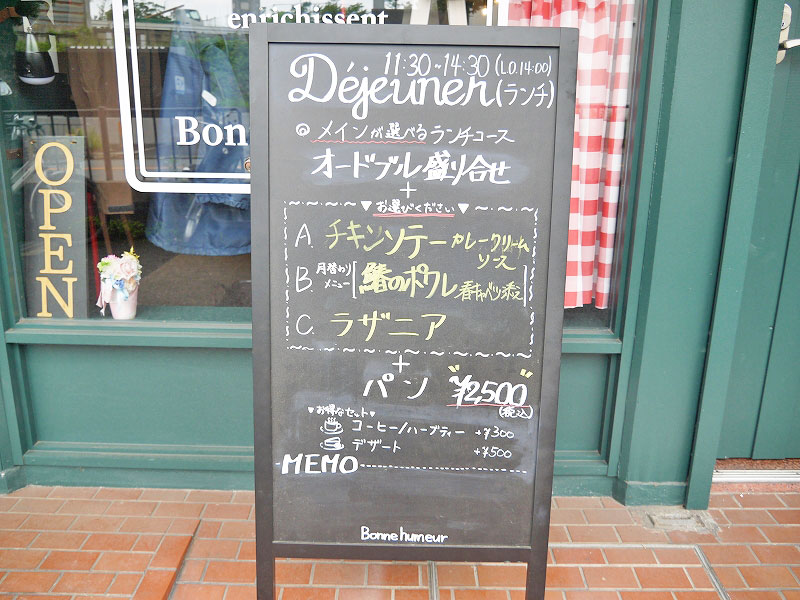 enrichissent
Bon
OPEN
11:30~14:30(L.O.14:00)
Déjeuner(ランチ)
◎メインが選べるランチコース
オードブル盛り合せ
+
▼お選びください▼
A. チキンソテーカレークリームソース
B. 月替わりメニュー 鰆のポワレ 春キャベツ添え
C. ラザニア
+
パン "¥2,500"
(税込)
♥お得なセット♥
コーヒー/ハーブティー +¥300
デザート +¥500
MEMO
Bonne humeur